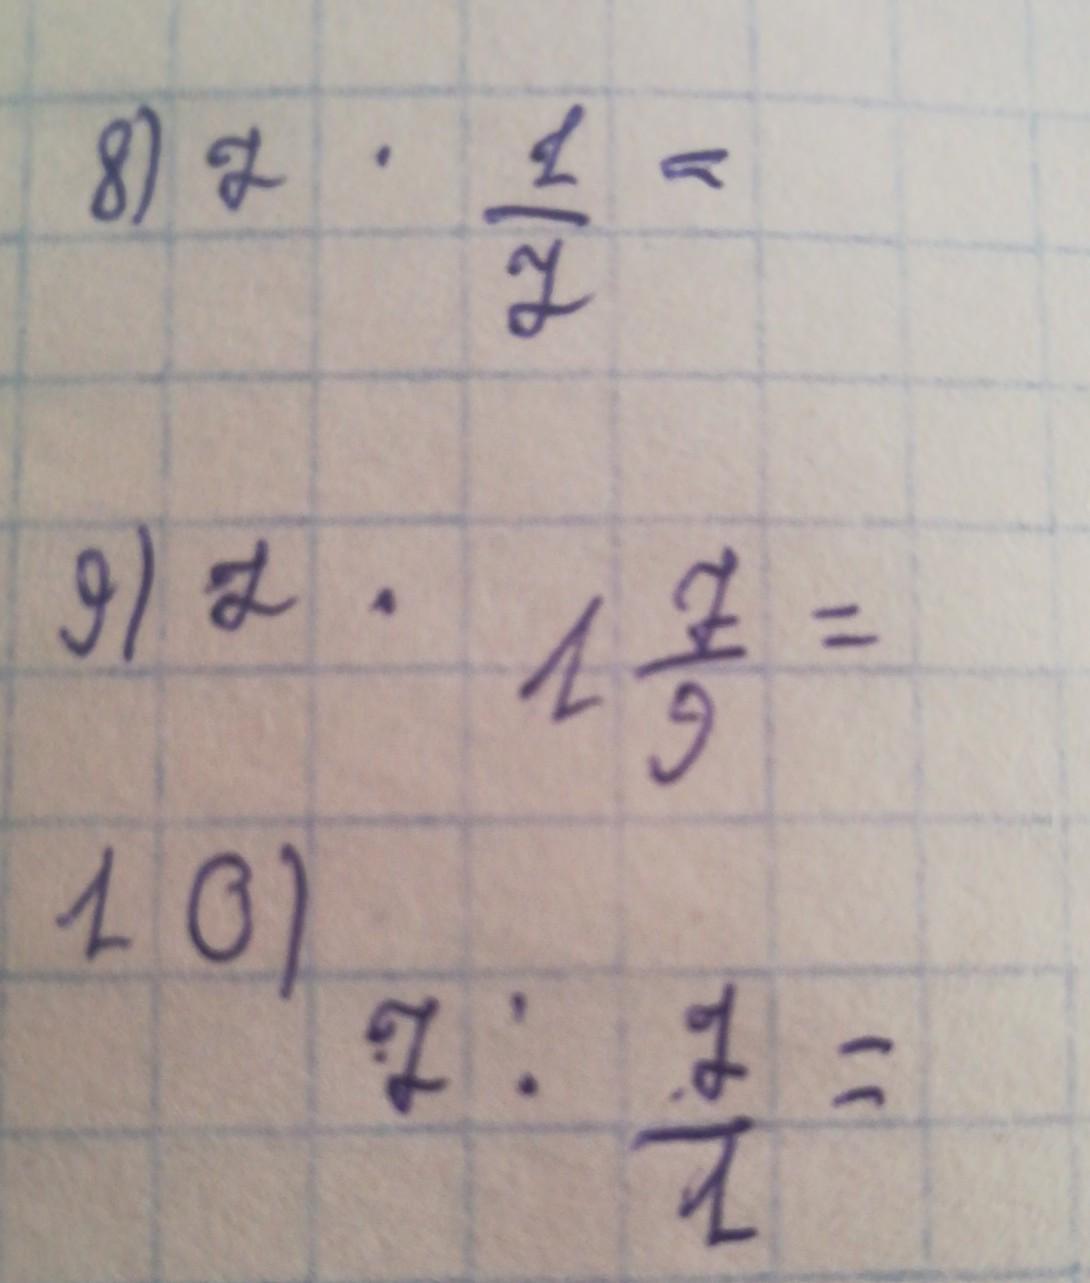 8) 7 · 1/7 =
9) 7 · 1 7/9 =
10)
7 : 7/1 =